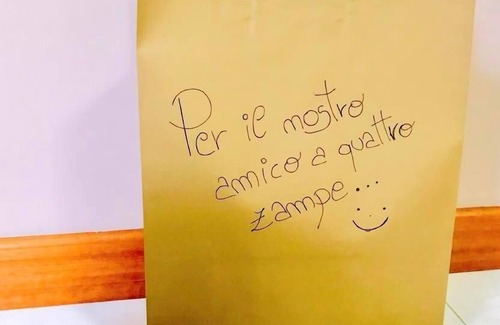 Per il nostro
amico a quattro
zampe...